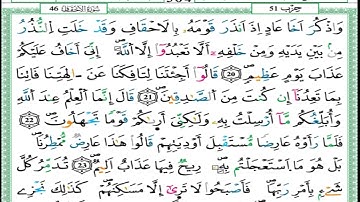 حزب 51 سورة الاحقاف 46
وَاذْكُرْ اَخَا عَادٍ اِذْ اَنْذَرَ قَوْمَهُ بِالْاَحْقَافِ وَقَدْ خَلَتِ النُّذُرُ
مِنْ بَيْنِ يَدَيْهِ وَمِنْ خَلْفِهِ اَلَّا تَعْبُدُٓوا اِلَّا اللّٰهَ اِنِّٓي اَخَافُ عَلَيْكُمْ
عَذَابَ يَوْمٍ عَظِيمٍ ﴿21﴾ قَالُٓوا اَجِئْتَنَا لِتَاْفِكَنَا عَنْ اٰلِهَتِنَا فَاْتِنَا
بِمَا تَعِدُنَٓا اِنْ كُنْتَ مِنَ الصَّادِقِينَ ﴿22﴾ قَالَ اِنَّمَا الْعِلْمُ عِنْدَ اللّٰهِ
وَاُبَلِّغُكُمْ مَٓا اُرْسِلْتُ بِهِ وَلٰكِنِّٓي اَرٰيكُمْ قَوْمًا تَجْهَلُونَ ﴿23﴾
فَلَمَّا رَاَوْهُ عَارِضًا مُسْتَقْبِلَ اَوْدِيَتِهِمْ قَالُوا هٰذَا عَارِضٌ مُمْطِرُنَا
بَلْ هُوَ مَا اسْتَعْجَلْتُمْ بِهِ رِيحٌ فِيهَا عَذَابٌ اَلِيمٌ ﴿24﴾ تُدَمِّرُ كُلَّ
شَيْءٍ بِاَمْرِ رَبِّهَا فَاَصْبَحُوا لَا يُرٰٓى اِلَّا مَسَاكِنُهُمْ كَذٰلِكَ نَجْزِي